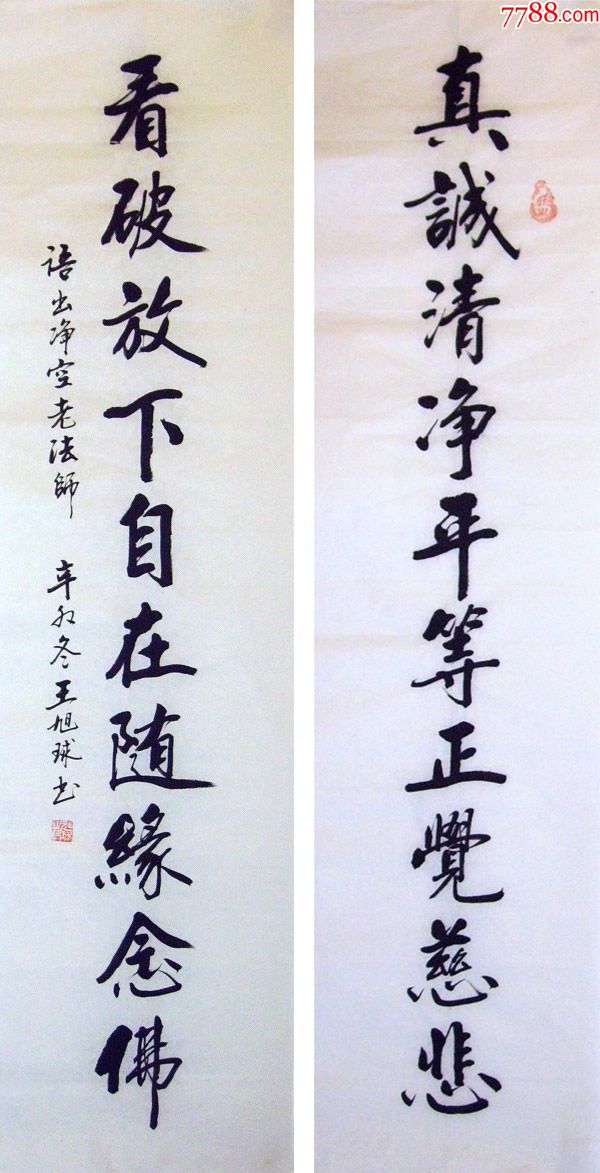 7788.com
真誠清净平等正覺慈悲
看破放下自在随緣念佛
语出净空老法師 辛卯冬王旭球书